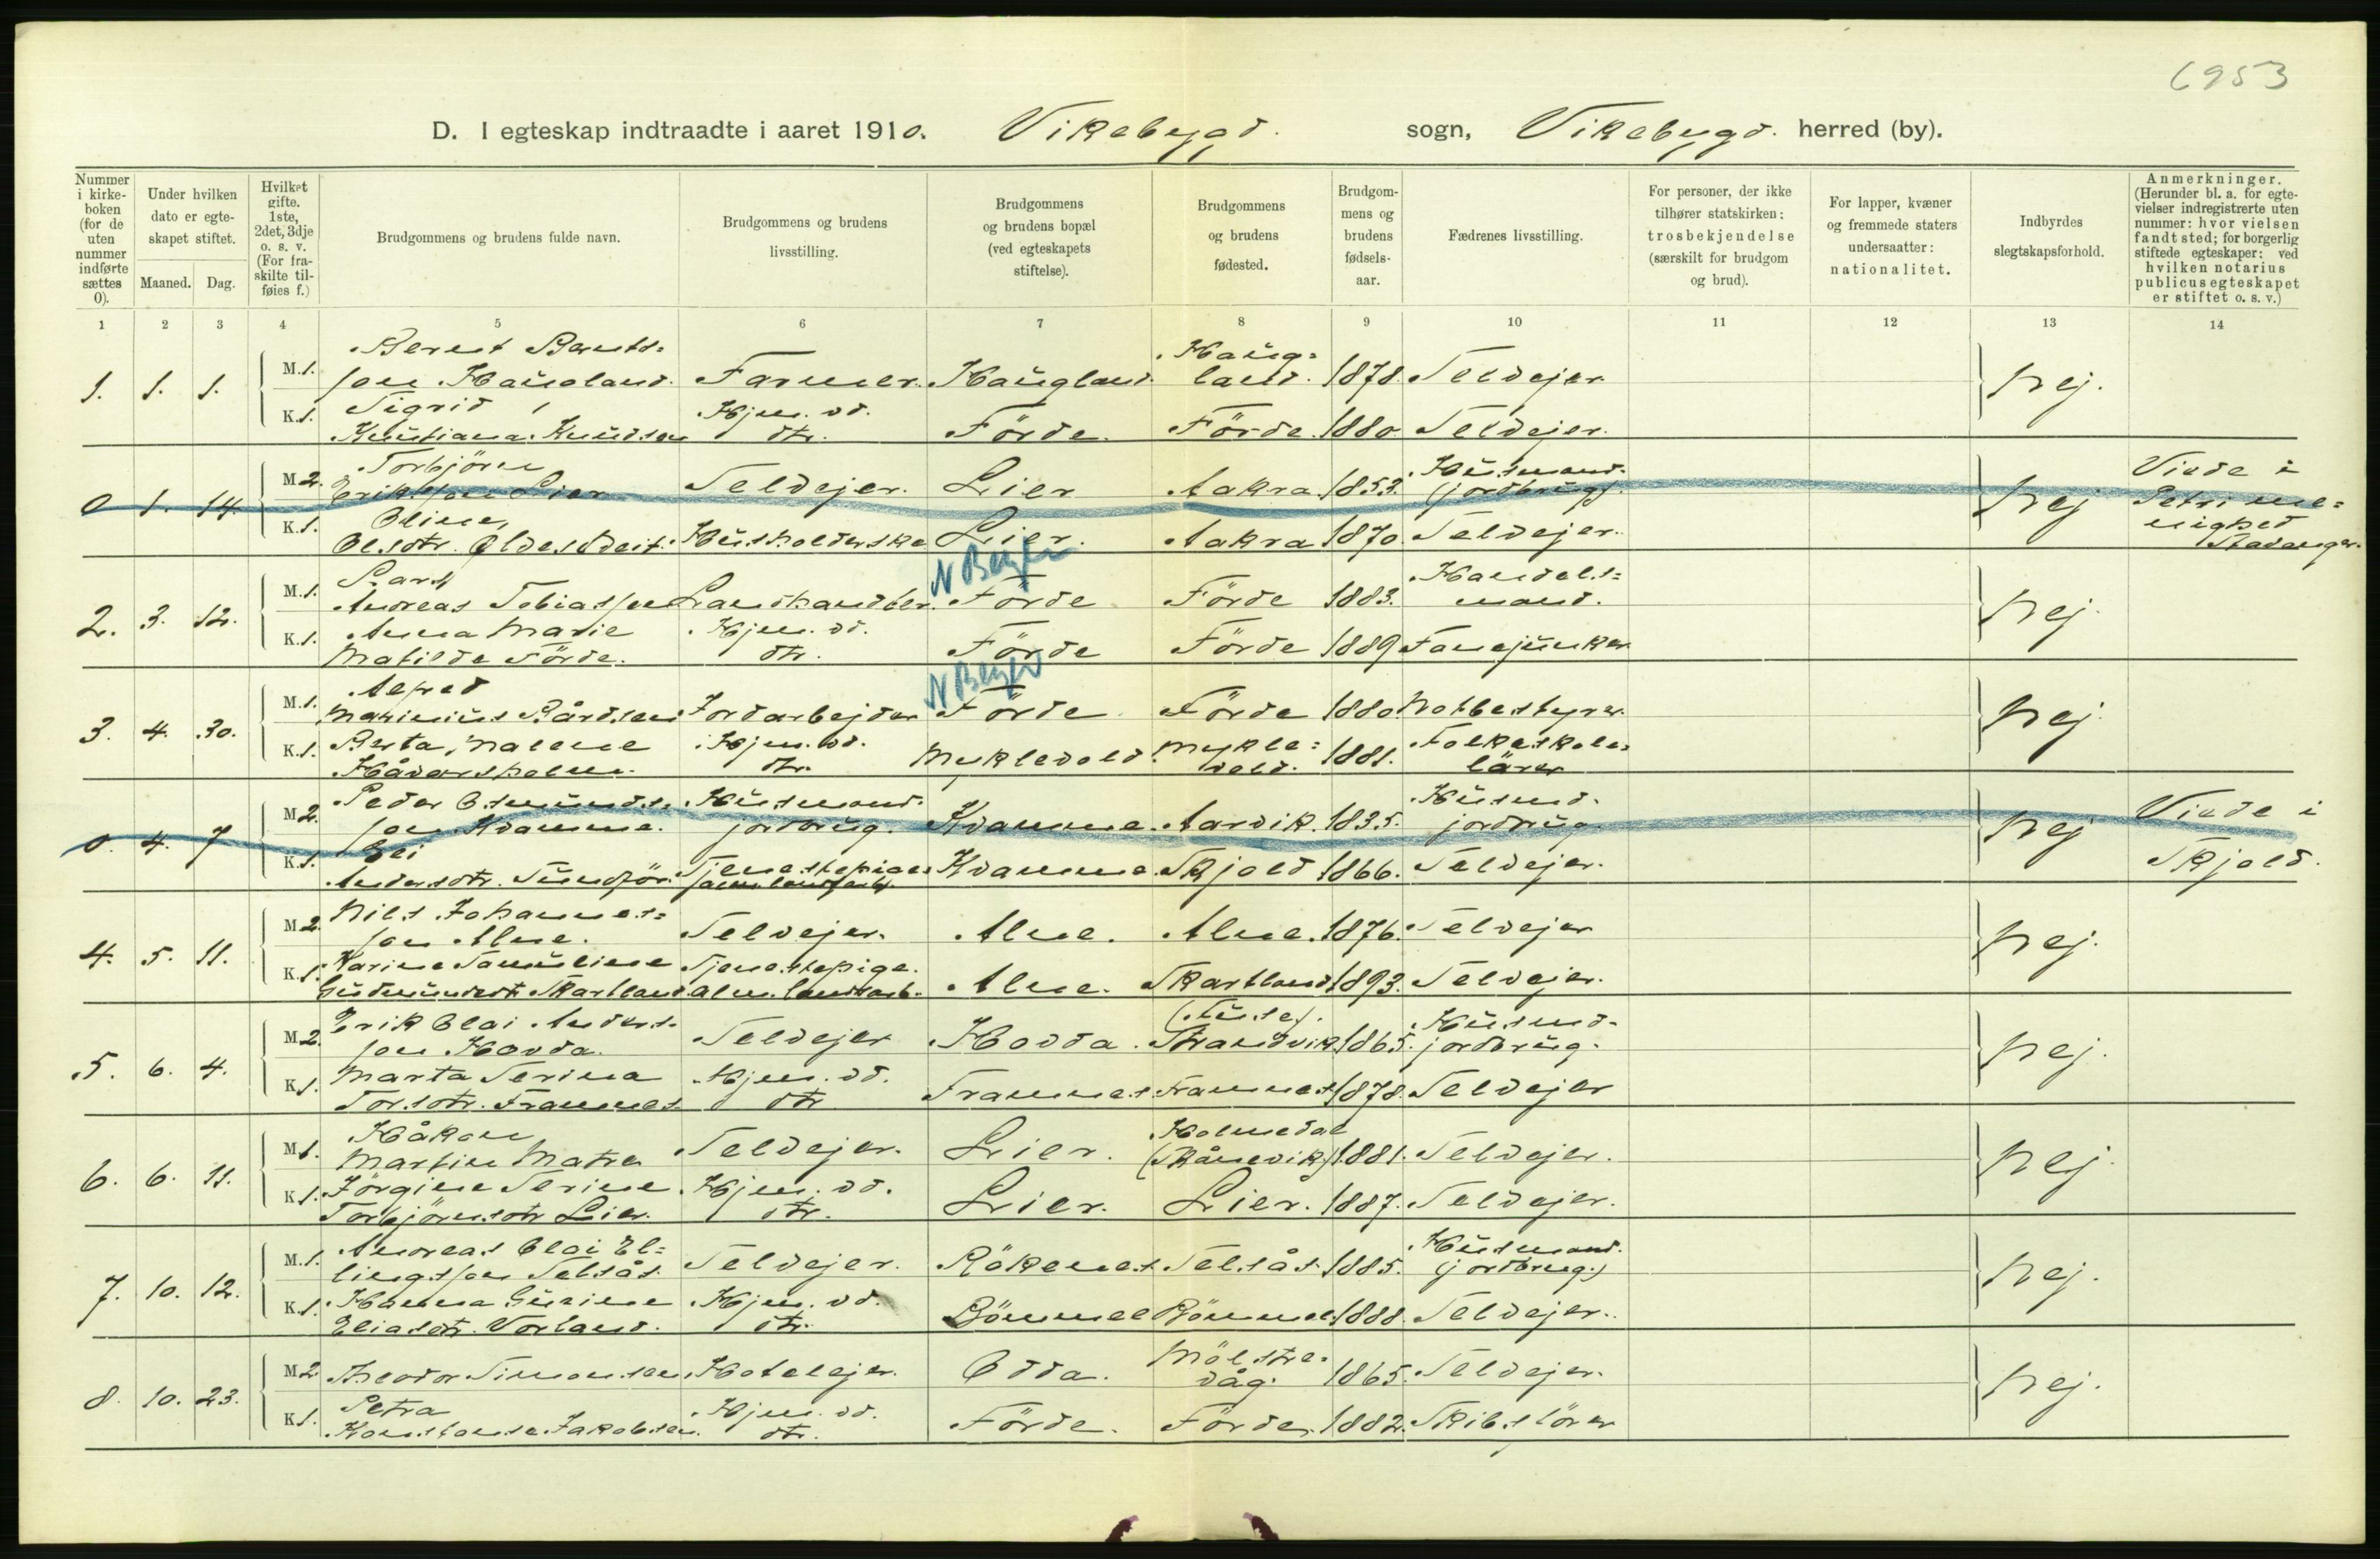 6953
D. I egteskap indtraadte i aaret 1910. Vikebygd. sogn, Vikebygd. herred (by).
Nummer i kirke-boken (for de uten nummer indførte sættes 0).
Under hvilken dato er egte-skapet stiftet.
Maaned. Dag.
Hvilket gifte. 1ste, 2det, 3dje o. s. v. (For fra-skilte til-føies f.)
Brudgommens og brudens fulde navn.
Brudgommens og brudens livsstilling.
Brudgommens og brudens bopæl (ved egteskapets stiftelse).
Brudgommens og brudens fødested.
Brudgom-mens og brudens fødsels-aar.
Fædrenes livsstilling.
For personer, der ikke tilhører statskirken: trosbekjendelse (særskilt for brudgom og brud).
For lapper, kvæner og fremmede staters undersaatter: nationalitet.
Indbyrdes slegtskapsforhold.
Anmerkninger. (Herunder bl. a. for egte-vielser indregistrerte uten nummer: hvor vielsen fandt sted; for borgerlig stiftede egteskaper: ved hvilken notarius publicus egteskapet er stiftet o. s. v.)
1 2 3 4 5 6 7 8 9 10 11 12 13 14
1. 1. 1. M. 1. Berent Berents=son Haugland. Farmer. Haugland. Haug=land. 1878. Selvejer. Nej.
K. 1. Sigrid Kristiana Knudsen Hjem. vd. dtr. Förde. Förde. 1880 Selvejer.
0 1. 14. M. 2. Torbjörn Erikson Lier Selvejer. Lier Aakra 1853. Husmand. (jordbrug). Nej Viede i Petri me=nighed Stavanger.
K. 1. Oline Olsdtr. Husholderske Lier. Aakra 1870. Selvejer.
N Berge
2. 3. 12. M. 1. Lars Andreas Tobiasson Landhandler. Förde Förde 1883. Handels=mand. Nej.
K. 1. Anna Marie Matilde Förde. Hjem. vd. dtr. Förde Förde 1889 Fanejunker
N Berge
3. 4. 30. M. 1. Alfred Marinius Bårdsen Jordarbejder Förde Förde 1880. Notbestyrer. Nej.
K. 1. Berta Malene Håvarsholm. Hjem. vd. dtr. Myklevold. Mykle=vold. 1881. Folkeskole=lärer
0. 4. 7 M. 2. Peder Osmunds=son Kvamme. Husmand. jordbrug. Kvamme. Aarvik. 1835. Husmd. jordbrug. Nej Viede i Skjold.
K. 1. Andersdtr. Sundför. Tjenestepige Kvamme. Skjold 1866. Selvejer.
4. 5. 11. M. 2. Nils Johannes=son Alne. Selvejer. Alne. Alne. 1876. Selvejer Nej.
K. 1. Karine Samuline Gudmundsdtr. Skartland. Tjenestepige. alm. landarb. Alne. Skartland 1893. Selvejer.
5. 6. 4. M. 2. Erik Olai Anders=son Hovda. Selvejer Hovda. (Fuse). Strandvik 1865. Husmd. jordbrug. Nej.
K. 1. Marta Serina Torsdtr. Framnes Hjem. vd. dtr. Framnes Framnes 1878. Selvejer
6. 6. 11. M. 1. Håkon Martin Matre Selvejer. Lier. Holmedal (Skånevik) 1881. Selvejer. Nej.
K. 1. Jörgine Serine Torbjörnsdtr Lier. Hjem. vd. dtr. Lier. Lier. 1887. Selvejer.
7. 10. 12. M. 1. Andreas Olai El=lingsson Selsås. Selvejer. Rökenes. Selsås. 1885. Husmand. (jordbrug.) Nej.
K. 1. Hanna Gurine Eliasdtr. Vorland. Hjem. vd. dtr. Bömmel Bömmel. 1888. Selvejer.
8. 10. 23. M. 2 Theodor Simonsen Hotelejer. Odda. Mölstre=våg. 1865. Selvejer. Nej.
K. 1. Petra Konstanse Jakobsen. Hjem. vd. dtr. Förde. Förde. 1882. Skibsförer